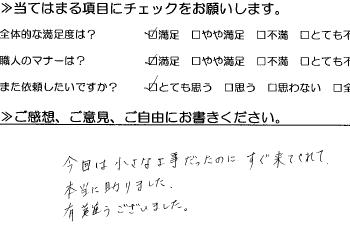 ≫当てはまる項目にチェックをお願いします。
全体的な満足度は? ☑満足 □やや満足 □不満 □とても不
職人のマナーは? ☑満足 □やや満足 □不満 □とても不
また依頼したいですか? ☑とても思う □思う □思わない □全
≫ご感想、ご意見、ご自由にお書きください。
今回は小さな工事だったのにすぐ来てくれて、
本当に助りました。
有難うございました。